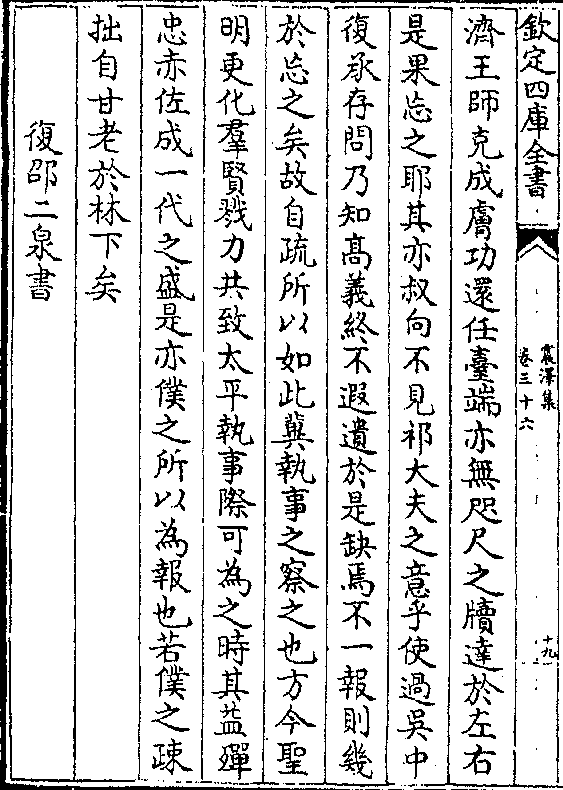 欽定四庫全書
震澤集
卷三十六
十九
濟王師克成膚功還任臺端亦無咫尺之牘達於左右
是果忘之耶其亦叔向不見祁大夫之意乎使過吳中
復承存問乃知髙義終不遐遺於是缺焉不一報則幾
於忘之矣故自疏所以如此冀執事之察之也方今聖
明更化羣賢戮力共致太平執事際可為之時其益殫
忠赤佐成一代之盛是亦僕之所以為報也若僕之疎
拙自甘老於林下矣
復邵二泉書